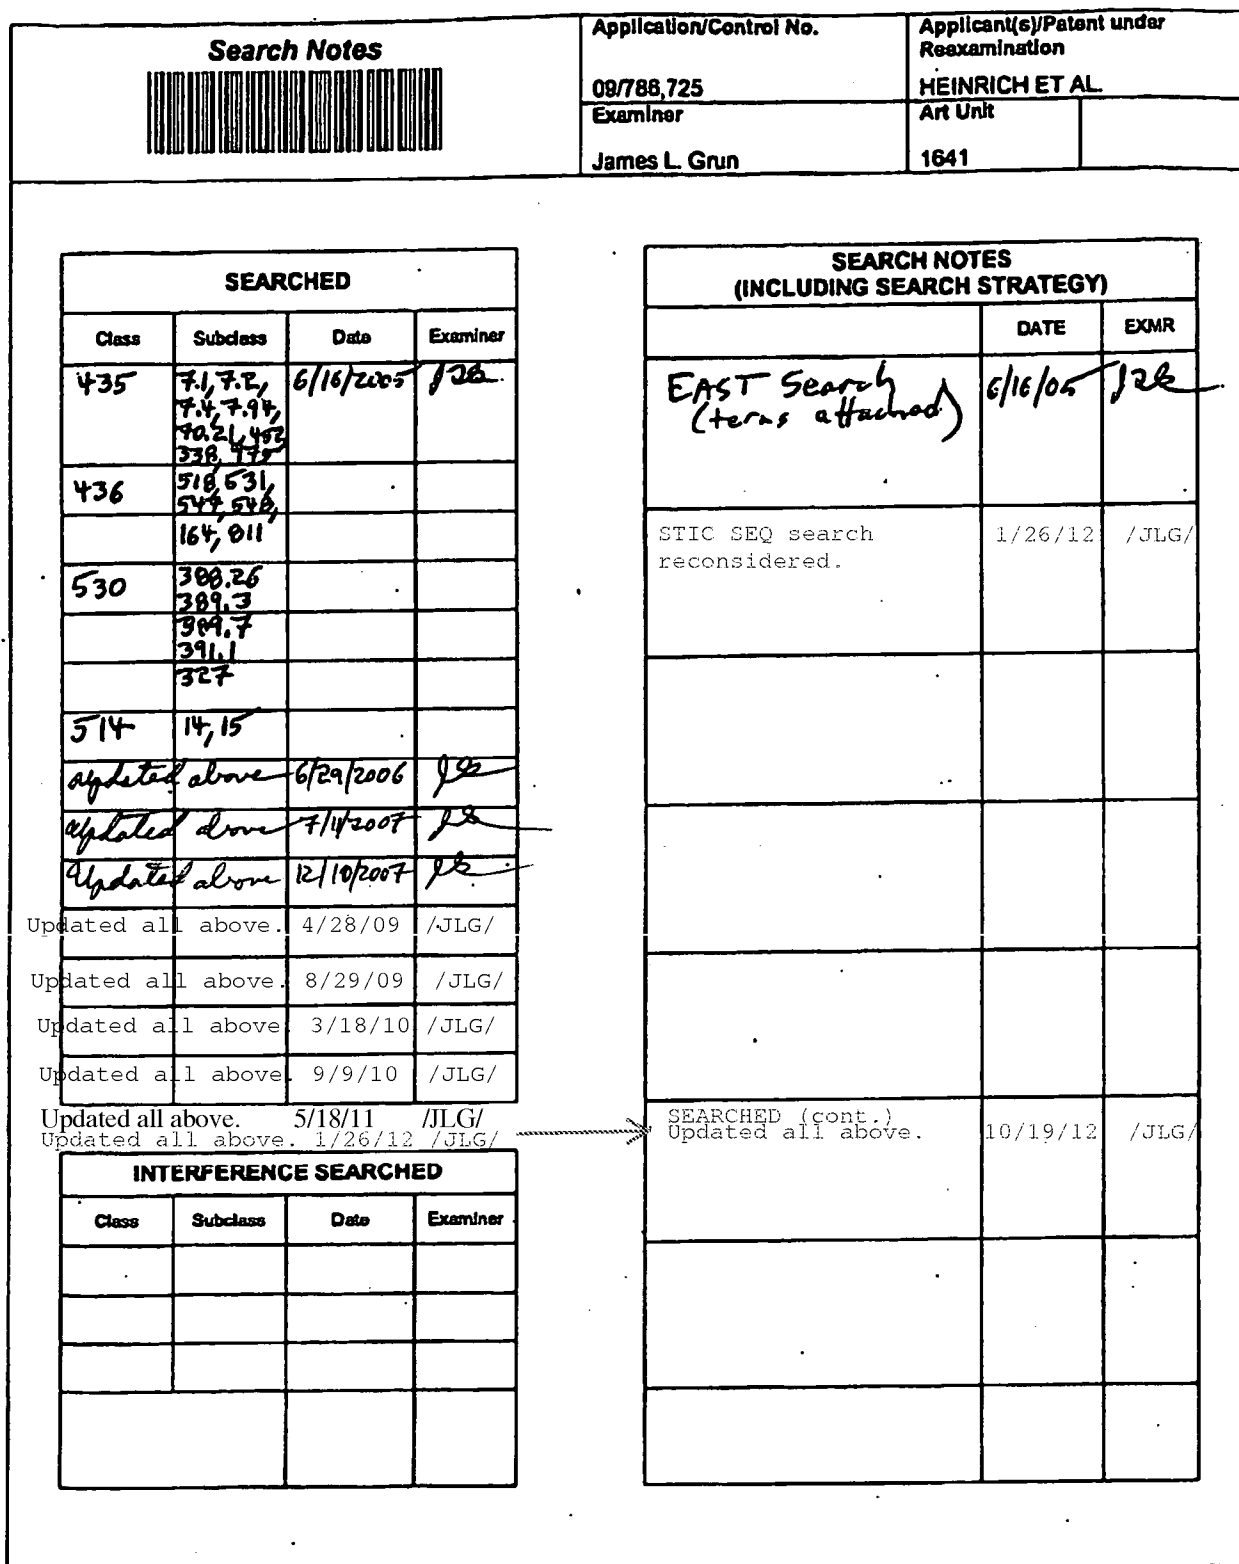 Search Notes
Application/Control No.
09/788,725
Applicant(s)/Patent under
Reexamination
HEINRICH ET AL.
Examiner
James L. Grun
Art Unit
1641
SEARCHED
Class Subclass Date Examiner
435 7.1, 7.2, 6/16/2005
7.4, 7.94,
70.21, 452
338, 975
436 518, 531,
544, 548,
164, 811
530 388.26
389.3
389.7
391.1
327
514 14, 15
updated above 6/29/2006
updated above 7/11/2007
Updated above 12/10/2007
Updated all above. 4/28/09 /JLG/
Updated all above. 8/29/09 /JLG/
Updated all above. 3/18/10 /JLG/
Updated all above. 9/9/10 /JLG/
Updated all above. 5/18/11 /JLG/
Updated all above. 1/26/12 /JLG/
INTERFERENCE SEARCHED
Class Subclass Date Examiner
SEARCH NOTES
(INCLUDING SEARCH STRATEGY)
DATE EXMR
EAST Search 6/16/05
(terms attached)
STIC SEQ search 1/26/12 /JLG/
reconsidered.
SEARCHED (cont.)
Updated all above. 10/19/12 /JLG/